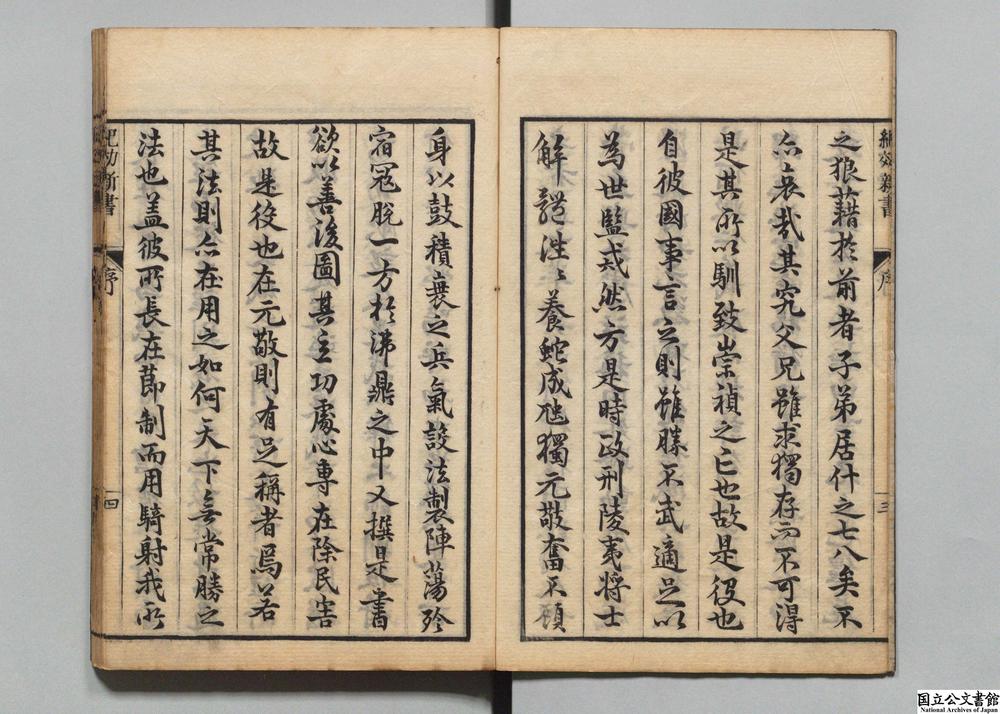 紀効新書
序
三
之狼藉於前者子弟居什之七八矣不
亦哀哉其究父兄雖求獨存而不可得
是其所以馴致崇禎之亡也故是役也
自彼國事言之則雖勝不武適足以
為世監戒然方是時政刑陵夷將士
解體泄〻養蛇成虺獨元敬奮不顧
身以鼓積衰之兵氣設法製陣蕩殄
宿冦脱一方於沸鼎之中又撰是書
欲以善後圖其立功處心專在除民害
故是役也在元敬則有足稱者焉若
其法則亦在用之如何天下無常勝之
法也盖彼所長在節制而用騎射我所
紀効新書
序
四
国立公文書館
National Archives of Japan